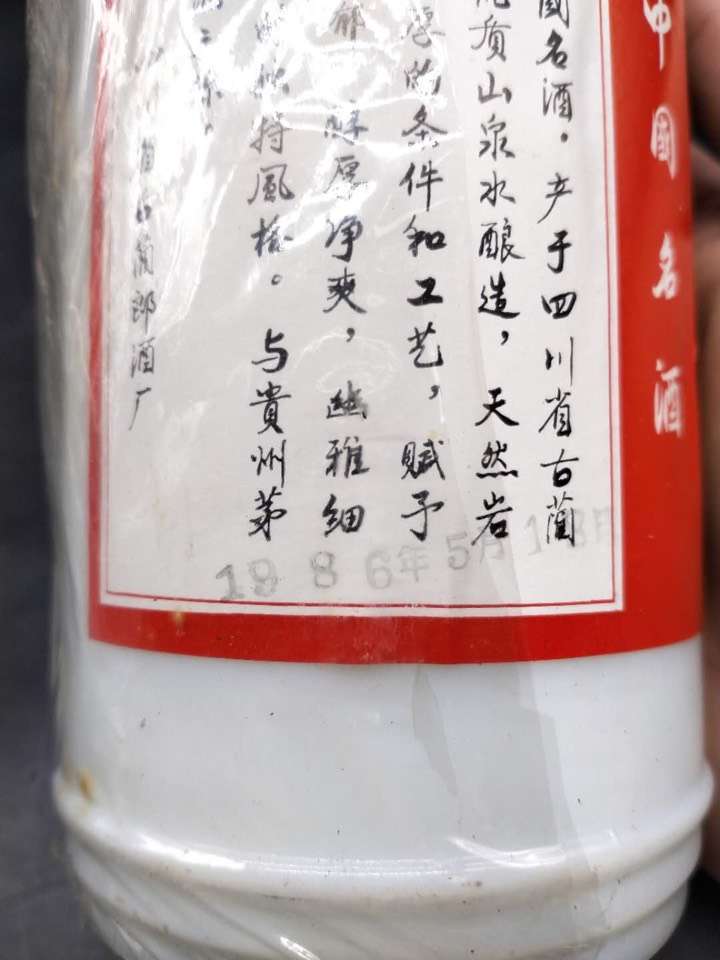 中國名酒
國名酒，产于四川省古蔺
质山泉水酿造，天然岩
的条件和工艺，赋予
味厚净爽，幽雅细
特風格。与貴州茅
古蔺郎酒厂
1986年5月18日